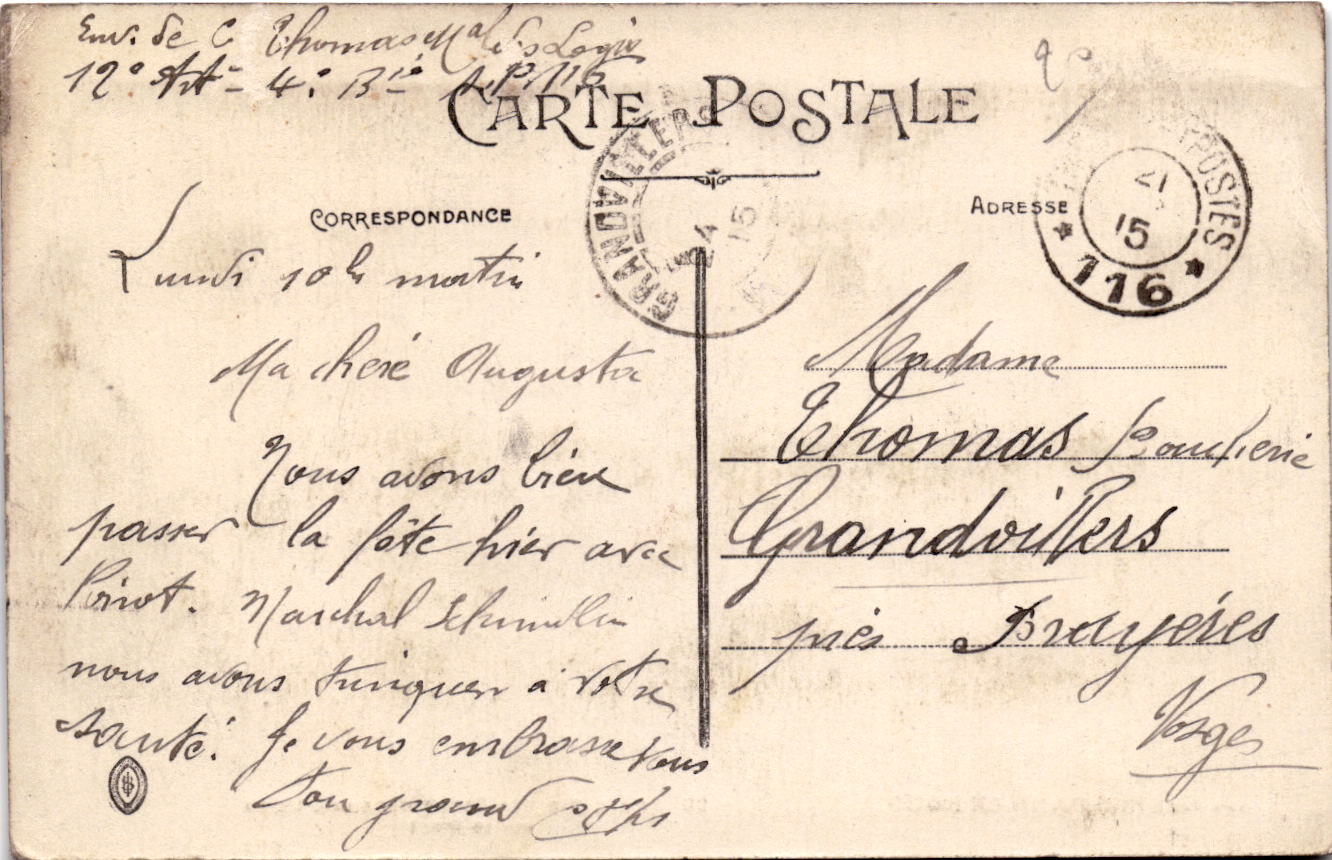 Env. de C Thomas Mal ds Logis
12e Art - 4e Bie
CARTE POSTALE
CORRESPONDANCE
ADRESSE
GRANDVILLERS
24
15
POSTES
21
15
* 116 *
Lundi 10 h matin
Ma chère Augusta
Nous avons bien
passer la fête hier avec
Marchal Schimdlin
nous avons trinquer à votre
santé. Je vous embrasse tous
Ton grand
Madame
Thomas
Grandvillers
près Bruyères
Vosges